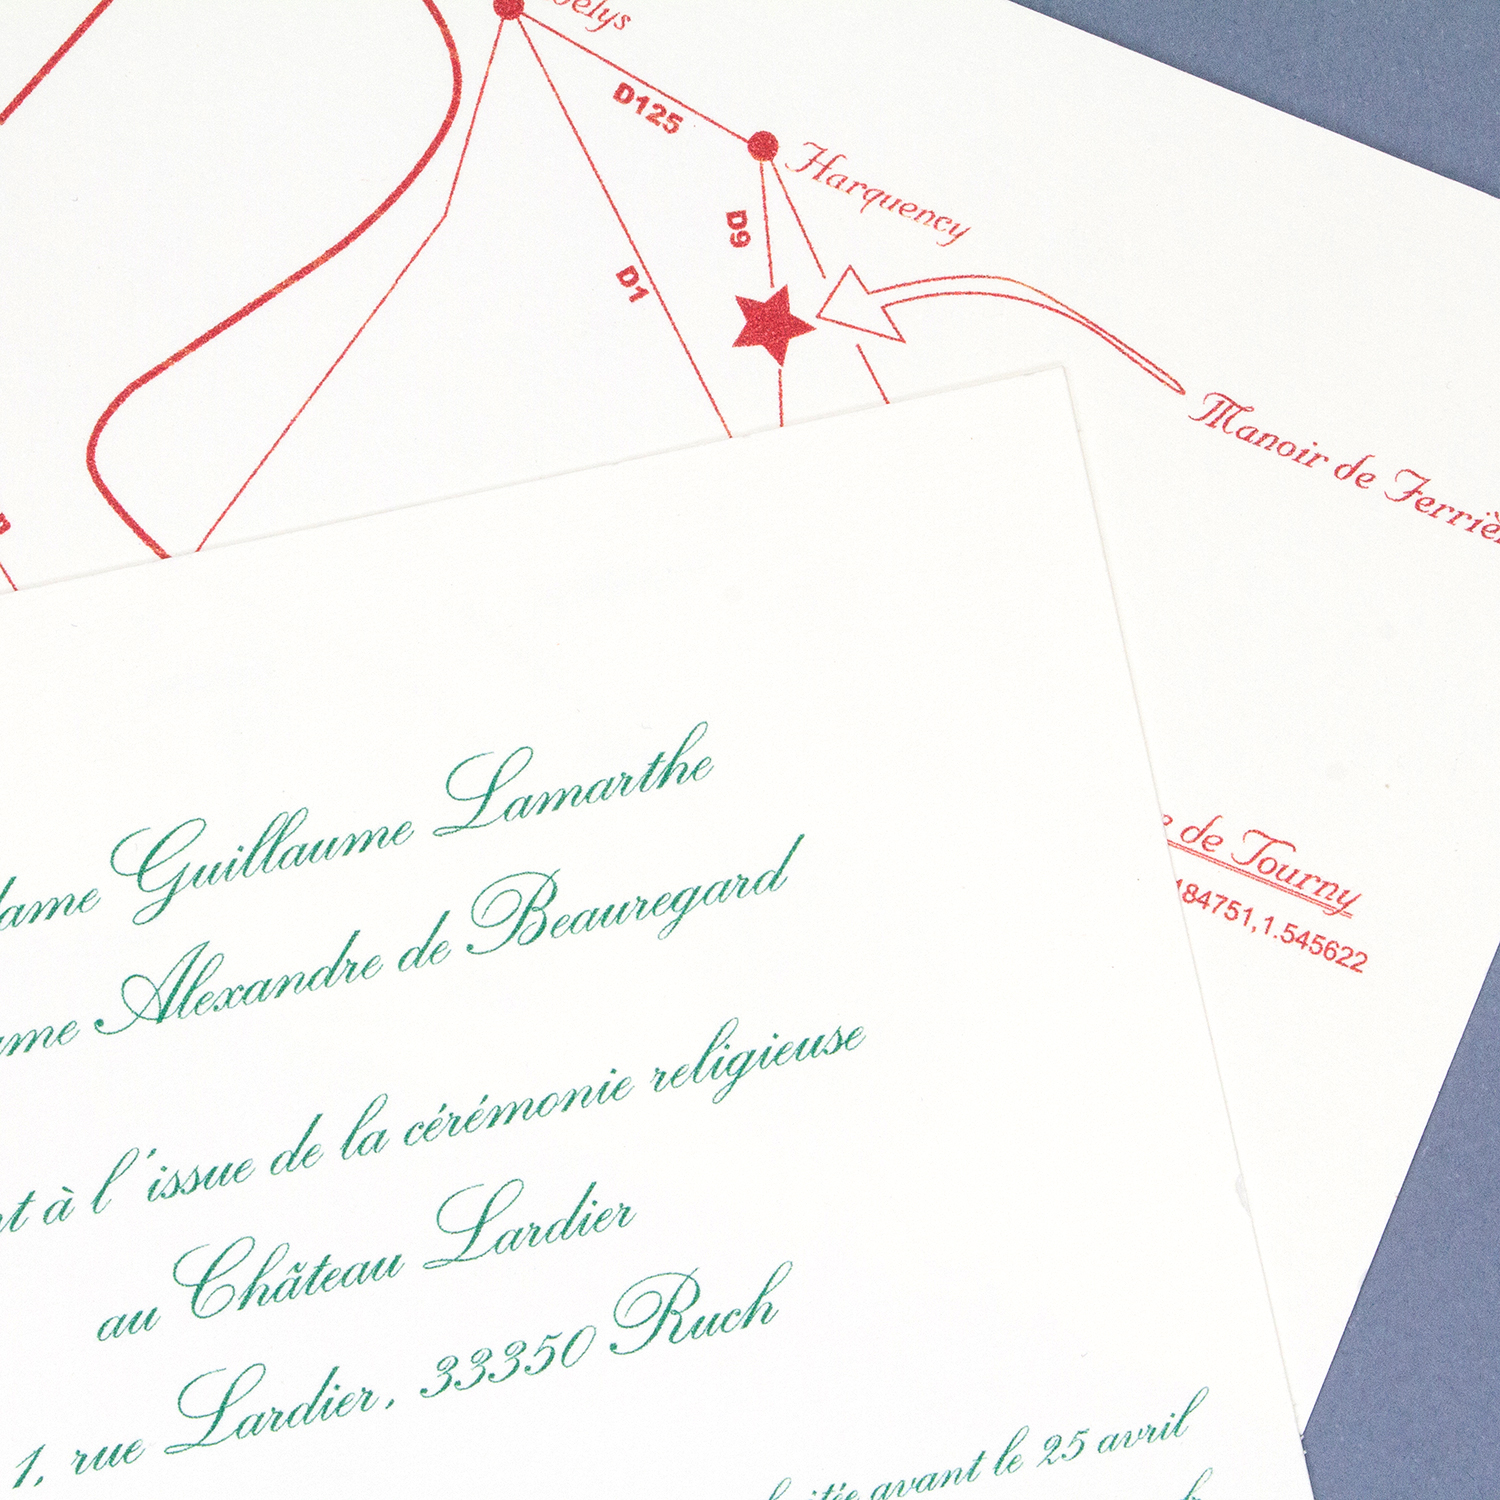 D125
Harquency
D9
D1
Manoir de
de Tourny
184751,1.545622
Guillaume Lamarthe
Alexandre de Beauregard
à l'issue de la cérémonie religieuse
au Château Lardier
1, rue Lardier, 33350 Ruch
avant le 25 avril